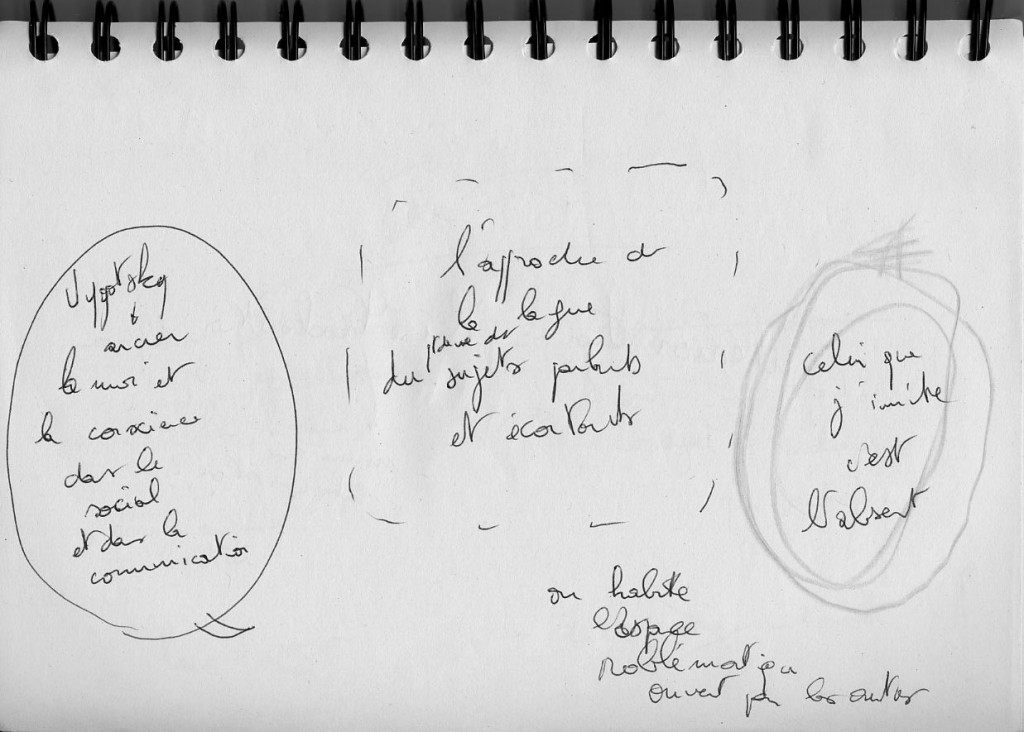 Vygotsky
ancrer
le moi et
la conscience
dans le
social
et dans la
communication
l'approche de
la langue
du sujets parlants
et écoutants
celui que
j'imite
c'est
l'absent
on habite
l'espace
problématique
ouvert par les autres